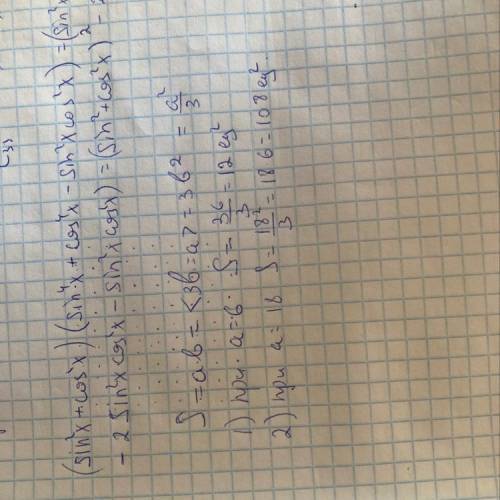 (sin²x + cos²x) (sin⁴x + cos⁴x - sin²x cos²x) = (sin²x
- 2 sin²x cos²x - sin²x cos²x) = (sin²+cos²x)² -
S = ab = <3b = a> = 3b² = a²/3
1) при a=6. S = 36/3 = 12 см²
2) при a = 18 S = 18²/3 = 18·6 = 108 см².